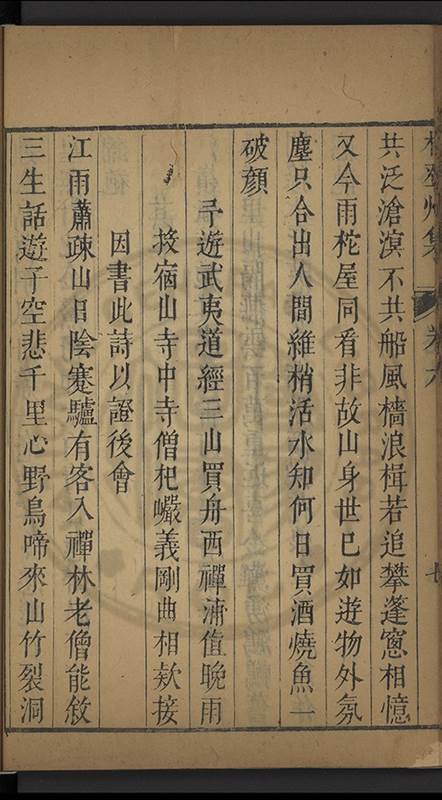 共泛滄溟不共船風檣浪楫若追攀蓬窓相憶
又今雨柁屋同看非故山身世已如遊物外氛
塵只合出人間維梢活水知何日買酒燒魚一
破顔
予遊武夷道經三山買舟西禪浦值晚雨
投宿山寺中寺僧杞巗義剛曲相欵接
因書此詩以證後會
江雨蕭疎山日陰蹇驢有客入禪林老僧能敘
三生話遊子空悲千里心野鳥啼來山竹裂洞